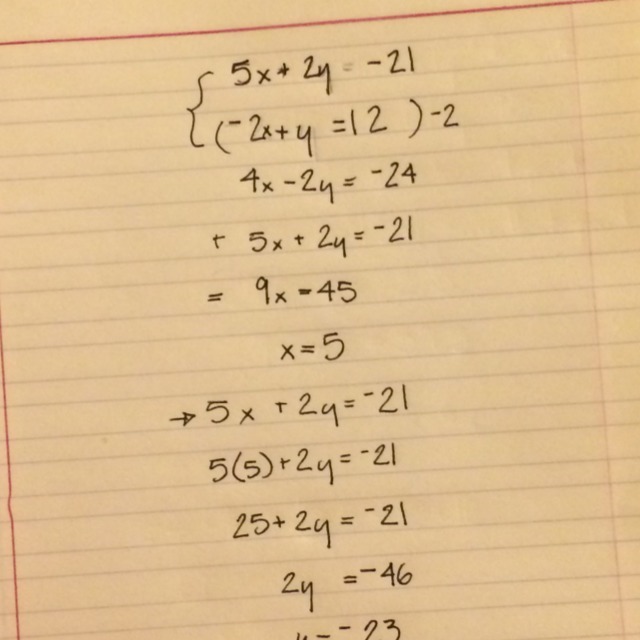 5x + 2y = -21
(-2x + y = 12) -2
4x - 2y = -24
+ 5x + 2y = -21
= 9x = 45
x = 5
→ 5x + 2y = -21
5(5) + 2y = -21
25 + 2y = -21
2y = -46
y = -23